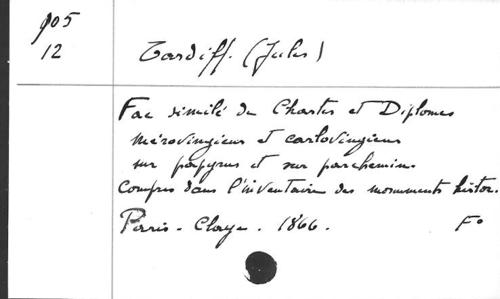 905
12
Tardiff. (Jules)
Fac similé de Chartes et Diplomes
mérovingiens et carlovingiens
sur papyrus et sur parchemin
compris dans l'inventaire des monuments histor.
Paris - Claye - 1866. F°